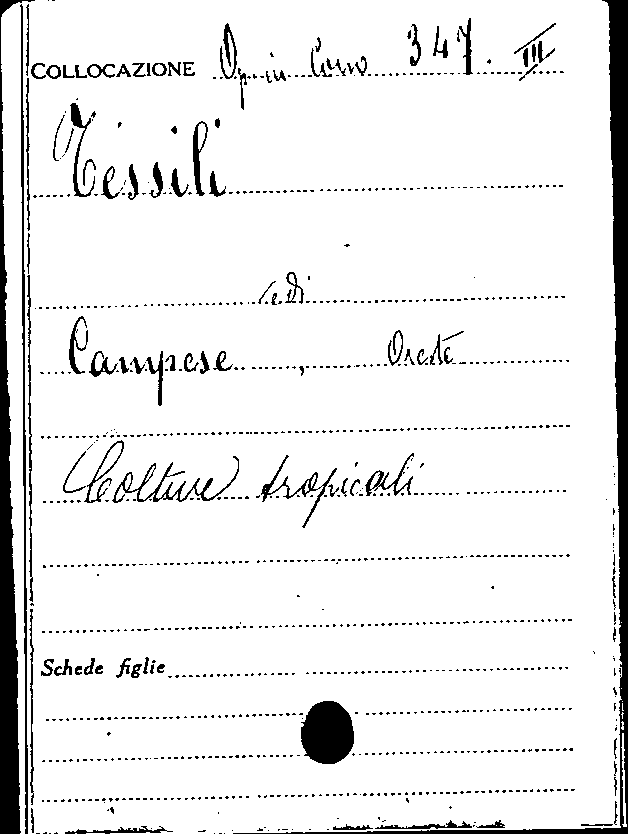 COLLOCAZIONE Op. in Corso 347. III
Tessili
vedi
Campese, Oreste
Colture tropicali
Schede figlie